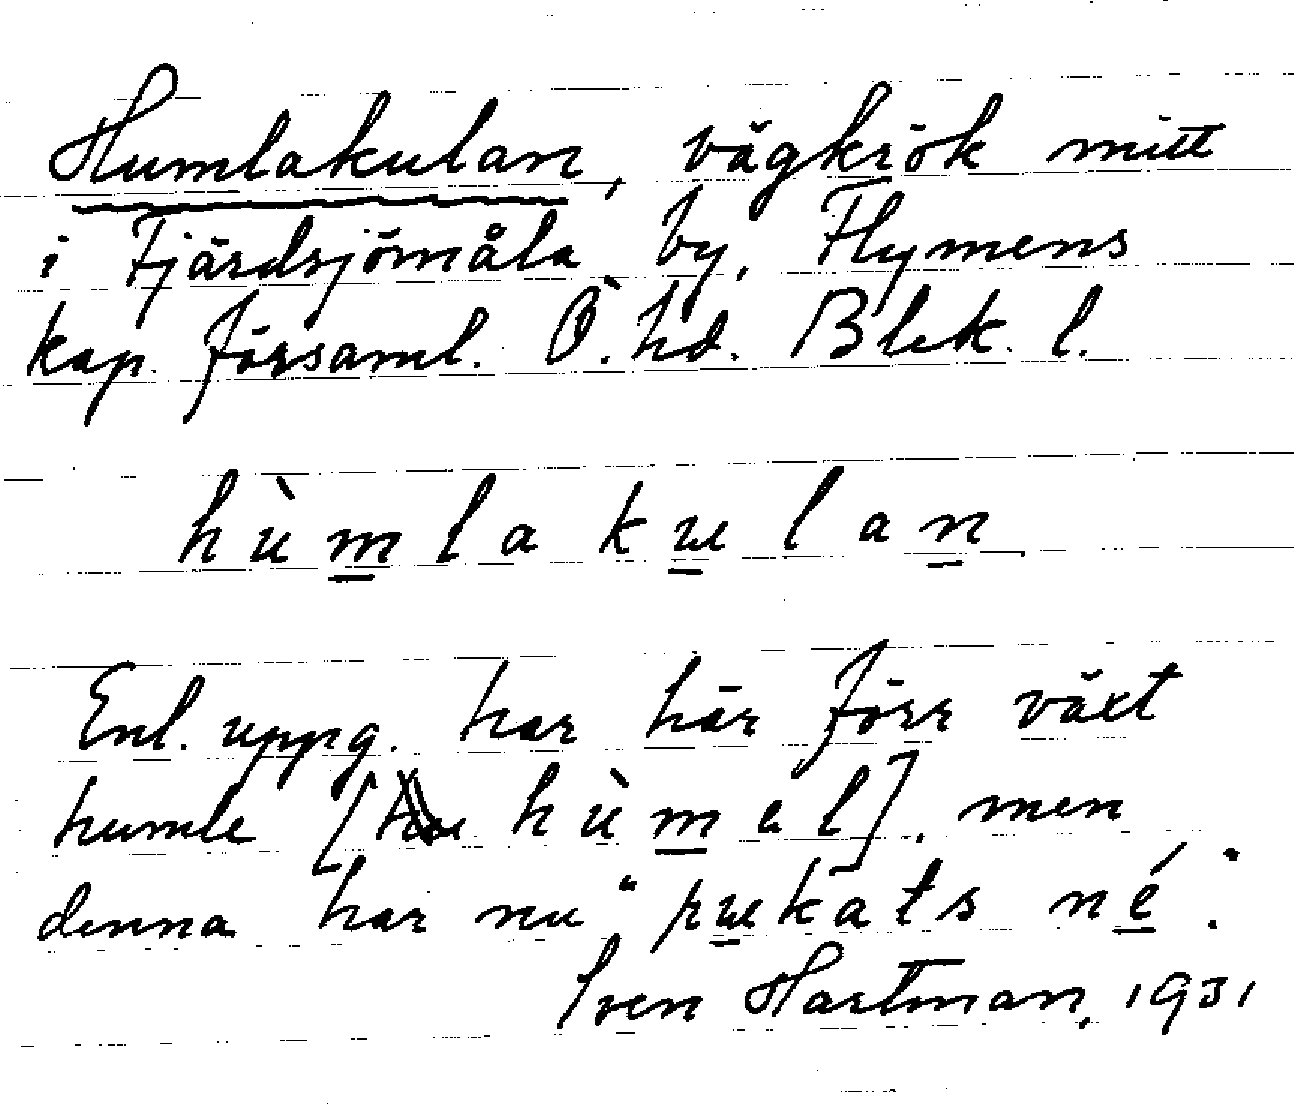 Humlakulan, vägkrök mitt
i Fjärdsjömåla by, Flymens
kap. församl. Ö. hd. Blek. l.
hùmlakulan
Enl. uppg. har här förr växt
humle [hùmel], men
denna har nu "pukats né".
Sven Hartman, 1931